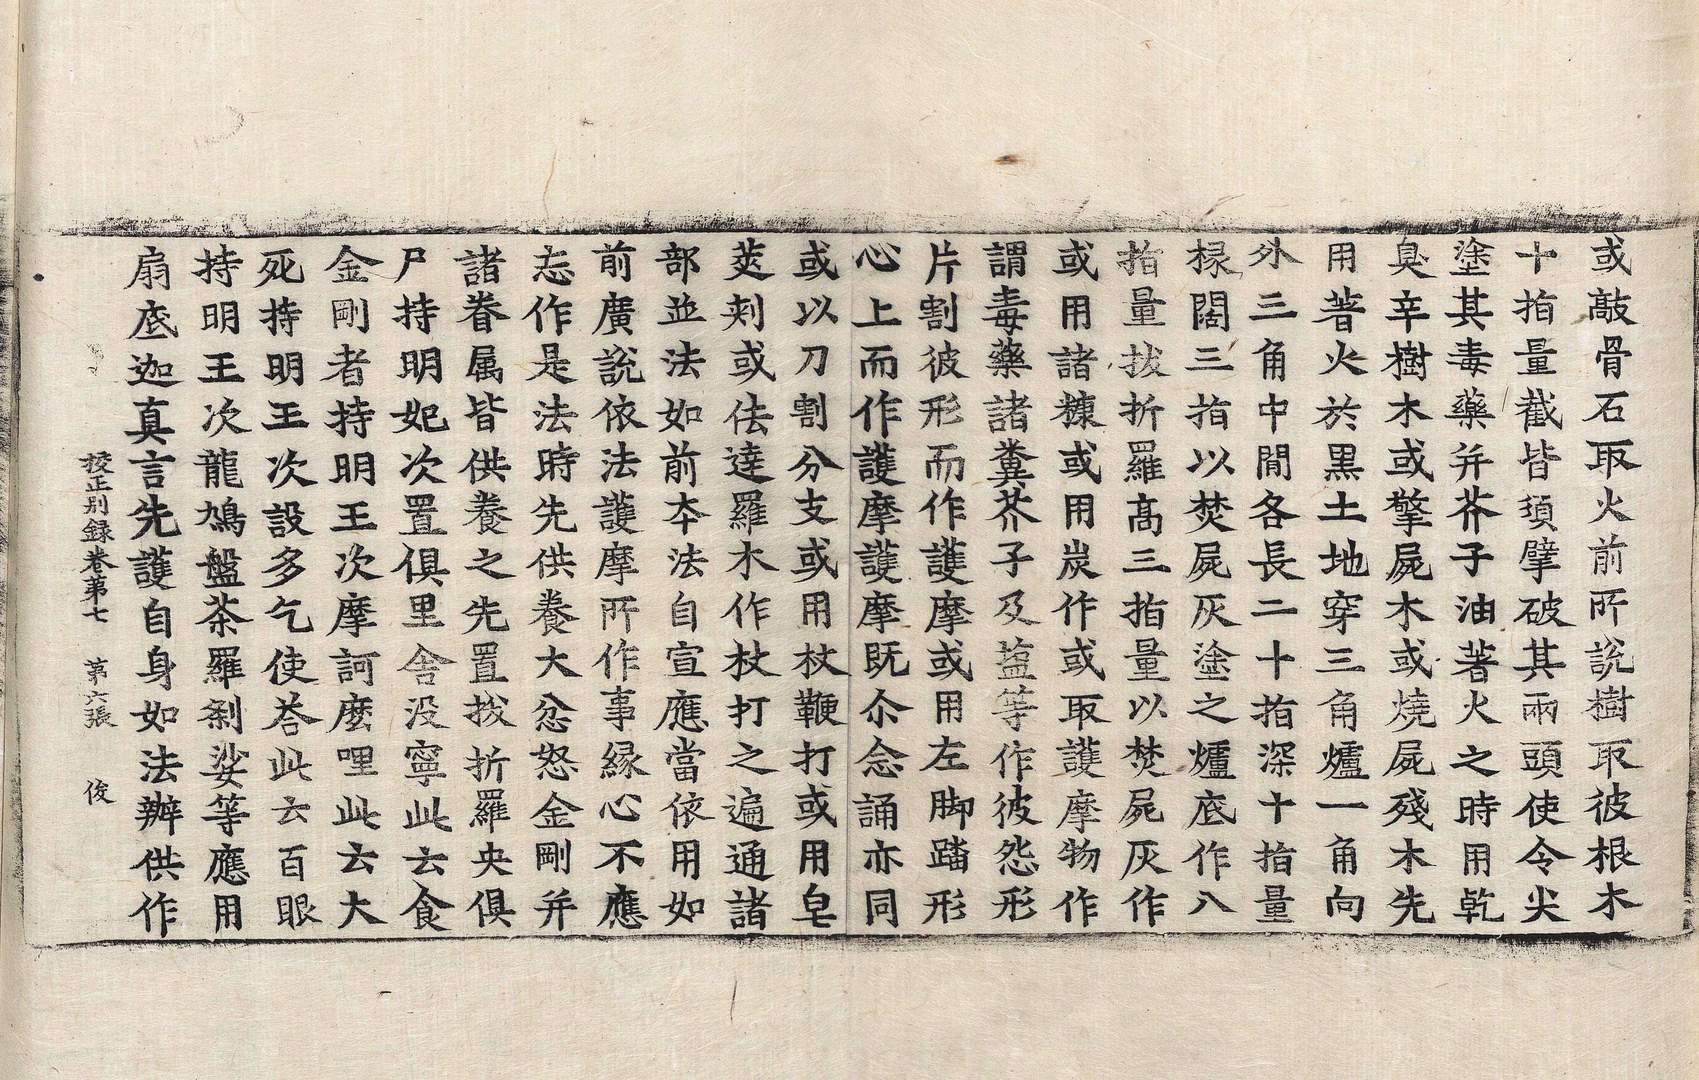 或敲骨石取火前所說樹取彼根木
十指量截皆須擘破其兩頭使令尖
塗其毒藥并芥子油著火之時用乾
臭辛樹木或擎屍木或燒屍殘木先
用著火於黑土地穿三角爐一角向
外三角中間各長二十指深十指量
椽闊三指以焚屍灰塗之爐底作八
指量拔折羅高三指量以焚屍灰作
或用諸糠或用炭作或取護摩物作
謂毒藥諸糞芥子及葢等作彼怨形
片割彼形而作護摩或用左脚踏形
心上而作護摩護摩既尒念誦亦同
或以刀割分支或用杖鞭打或用皂
莢刺或佉達羅木作杖打之遍通諸
部並法如前夲法自宣應當依用如
前廣說依法護摩所作事緣心不應
忘作是法時先供養大忿怒金剛并
諸眷属皆供養之先置拔折羅央俱
尸持明妃次置俱里舍没寧此云食
金剛者持明王次摩訶麽哩此云大
死持明王次設多乞使荅此云百眼
持明王次龍鳩盤荼羅剎娑等應用
扇底迦真言先護自身如法辦供作
校正别録卷第七　第六張　俊